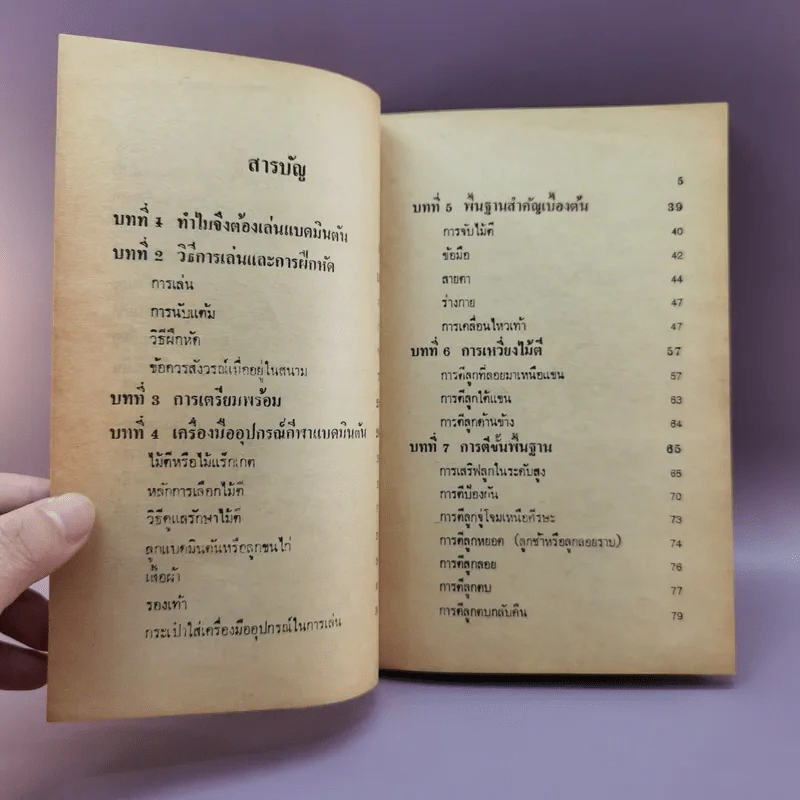 สารบัญ
บทที่ 1 ทำไมจึงต้องเล่นแบดมินตัน
บทที่ 2 วิธีการเล่นและการฝึกหัด
การเล่น
การนับแต้ม
วิธีฝึกหัด
ข้อควรสังวรณ์เมื่ออยู่ในสนาม
บทที่ 3 การเตรียมพร้อม
บทที่ 4 เครื่องมืออุปกรณ์กีฬาแบดมินตัน
ไม้ตีหรือไม้แร็กเกต
หลักการเลือกไม้ตี
วิธีดูแลรักษาไม้ตี
ลูกแบดมินตันหรือลูกขนไก่
เสื้อผ้า
รองเท้า
กระเป๋าใส่เครื่องมืออุปกรณ์ในการเล่น
5
บทที่ 5 พื้นฐานสำคัญเบื้องต้น 39
การจับไม้ตี 40
ข้อมือ 42
สายตา 44
ร่างกาย 47
การเคลื่อนไหวเท้า 47
บทที่ 6 การเหวี่ยงไม้ตี 57
การตีลูกที่ลอยมาเหนือแขน 57
การตีลูกใต้แขน 63
การตีลูกด้านข้าง 64
บทที่ 7 การตีขั้นพื้นฐาน 65
การเสริฟลูกในระดับสูง 65
การตีป้องกัน 70
การตีลูกจู่โจมเหนือศีรษะ 73
การตีลูกหยอด (ลูกช้าหรือลูกลอยราบ) 74
การตีลูกลอย 76
การตีลูกตบ 77
การตีลูกตบกลับคืน 79